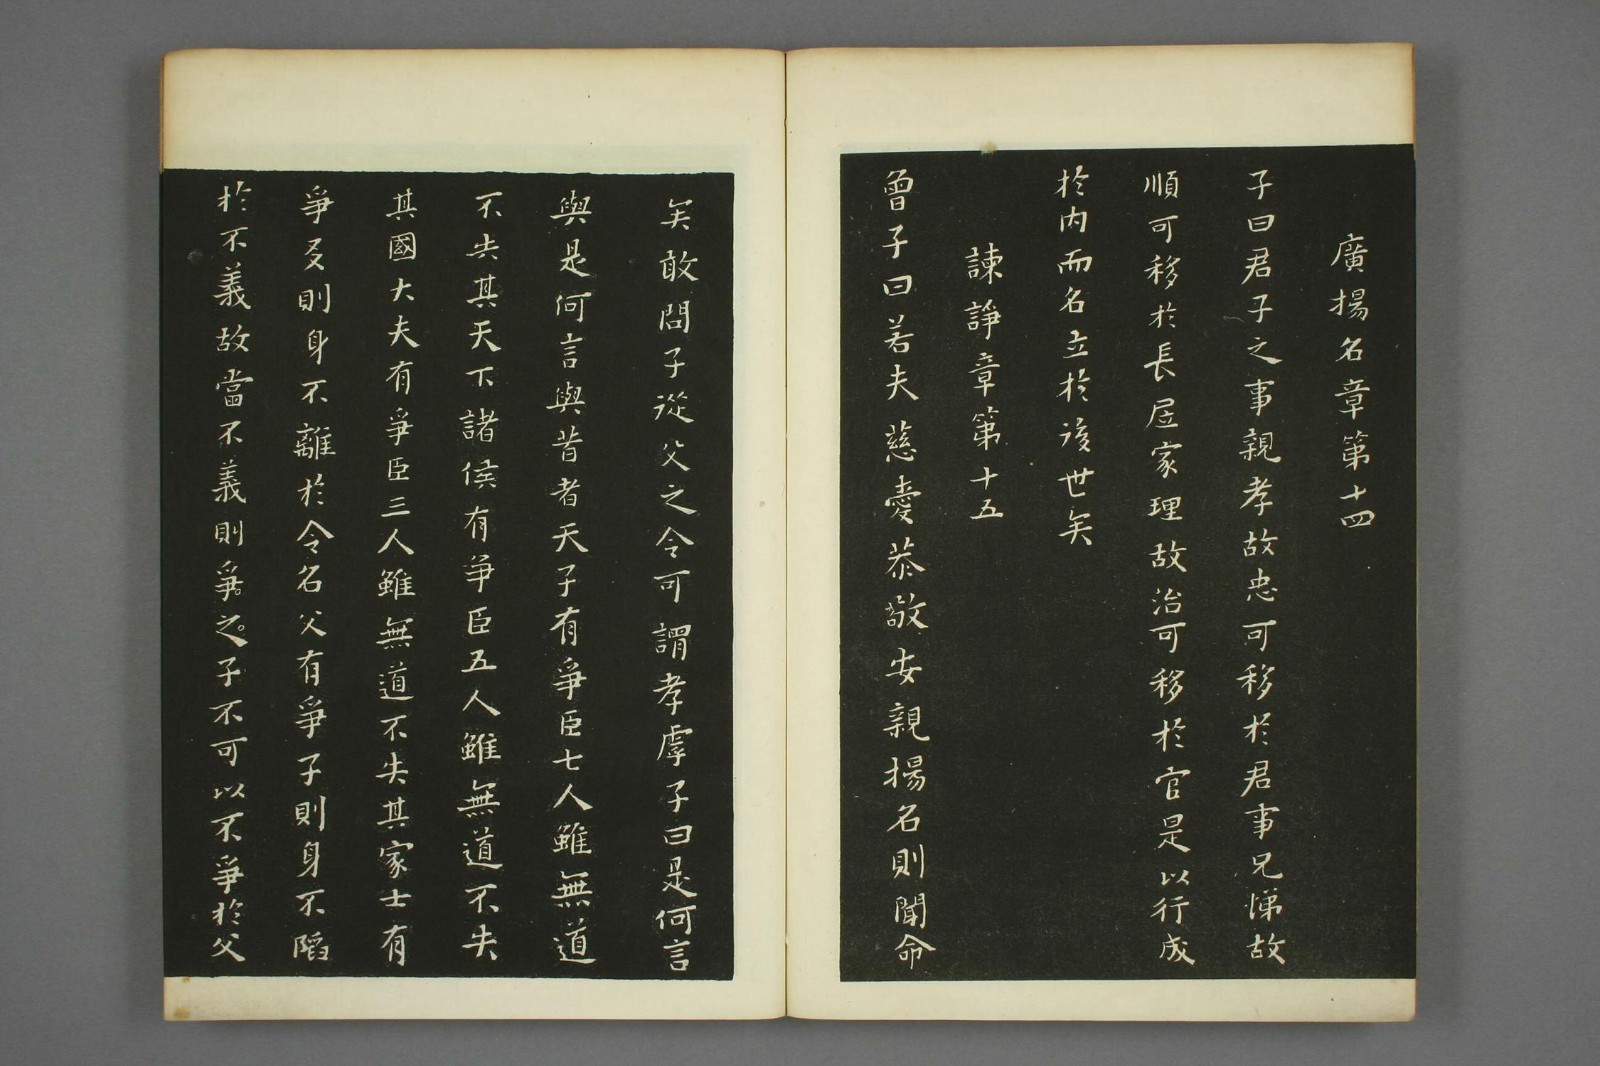 廣揚名章第十四
子曰君子之事親孝故忠可移於君事兄悌故
順可移於長居家理故治可移於官是以行成
於内而名立於後世矣
諫諍章第十五
曾子曰若夫慈愛恭敬安親揚名則聞命
矣敢問子從父之令可謂孝虖子曰是何言
與是何言與昔者天子有爭臣七人雖無道
不失其天下諸侯有爭臣五人雖無道不失
其國大夫有爭臣三人雖無道不失其家士有
爭友則身不離於令名父有爭子則身不陷
於不義故當不義則爭之子不可以不爭於父